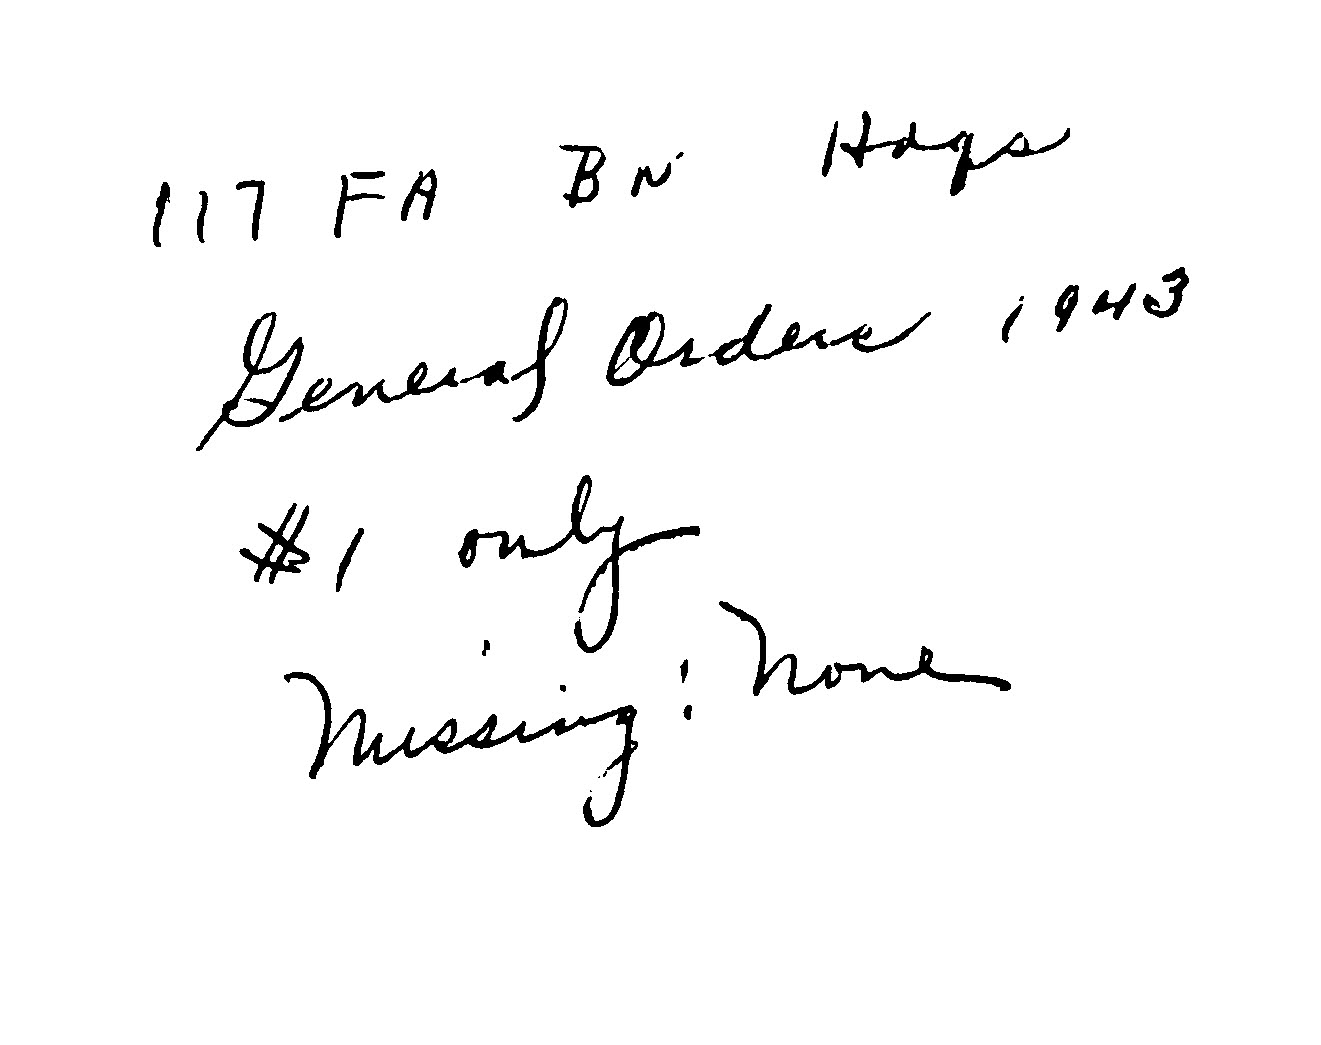 117 FA BN Hdqs
General Orders 1943
#1 only
Missing: None